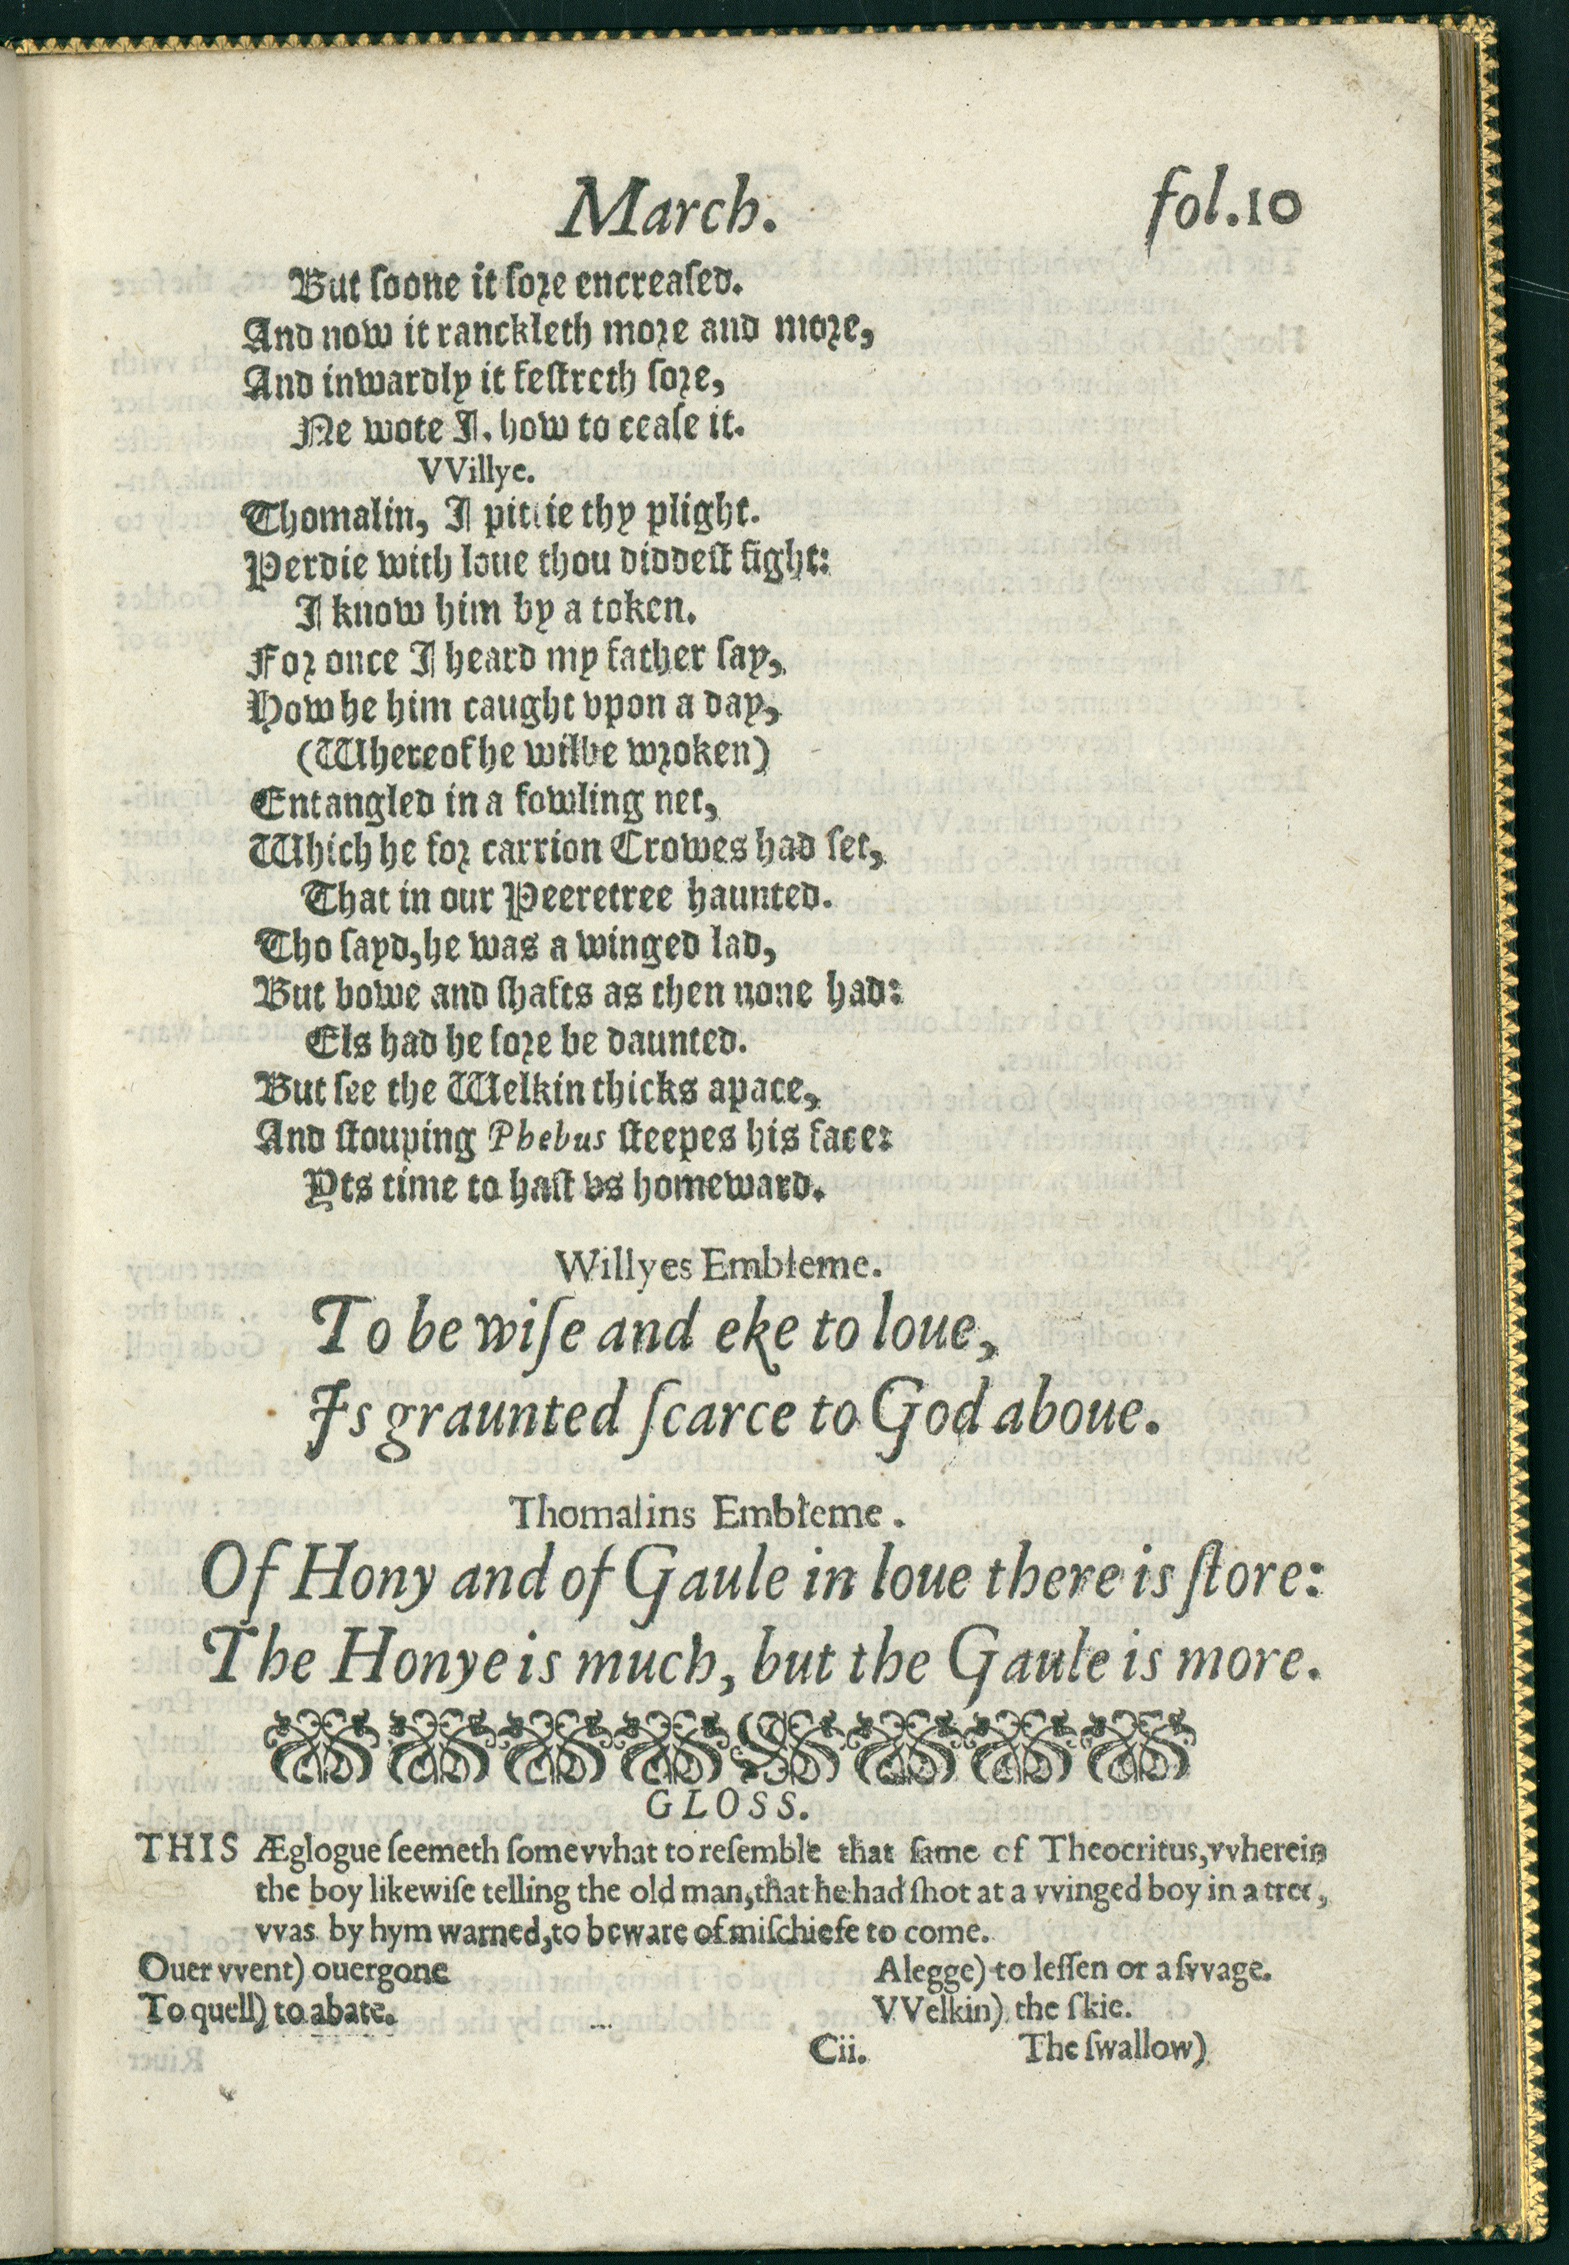 March.
fol.10
But ſoone it ſore encreaſed.
And now it ranckleth more and more,
And inwardly it feſtreth ſore,
Ne wote I, how to ceaſe it.
VVillye.
Thomalin, I pittie thy plight.
Perdie with loue thou diddeſt fight:
I know him by a token.
For once I heard my father ſay,
How he him caught vpon a day,
(Whereof he wilbe wroken)
Entangled in a fowling net,
Which he for carrion Crowes had ſet,
That in our Peeretree haunted.
Tho ſayd, he was a winged lad,
But bowe and ſhafts as then none had:
Els had he ſore be daunted.
But ſee the Welkin thicks apace,
And ſtouping Phebus ſteepes his face:
Yts time to haſt vs homeward.
Willyes Embleme.
To be wiſe and eke to loue,
Is graunted ſcarce to God aboue.
Thomalins Embleme.
Of Hony and of Gaule in loue there is ſtore:
The Honye is much, but the Gaule is more.
GLOSS.
THIS Æglogue ſeemeth ſomevvhat to reſemble that ſame of Theocritus, vvherein
the boy likewiſe telling the old man, that he had ſhot at a vvinged boy in a tree,
vvas by hym warned, to beware of miſchiefe to come.
Ouer vvent) ouergone
Alegge) to leſſen or aſvvage.
To quell) to abate.
VVelkin) the ſkie.
Cii.
The ſwallow)